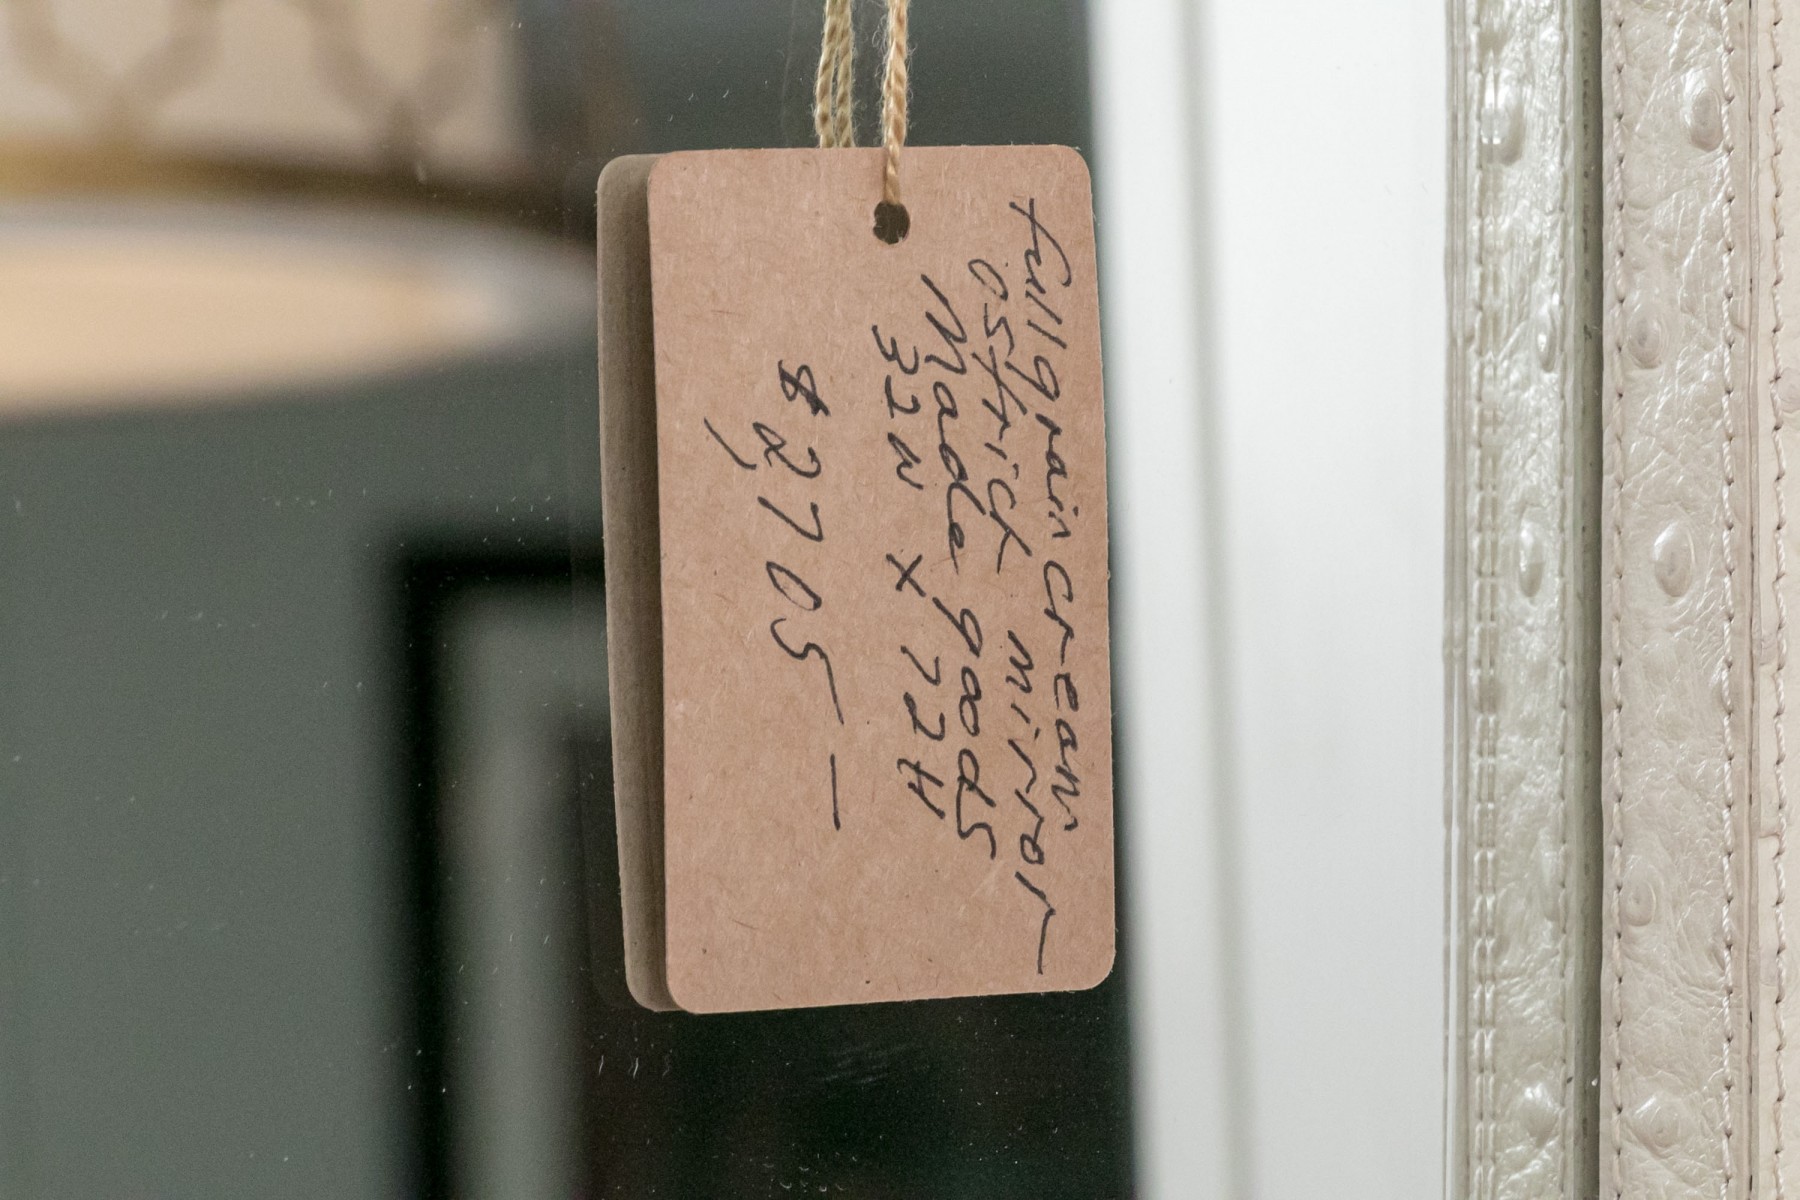 full grain cream
ostrick mirror
Made goods
32W x 72H
$2,705 —